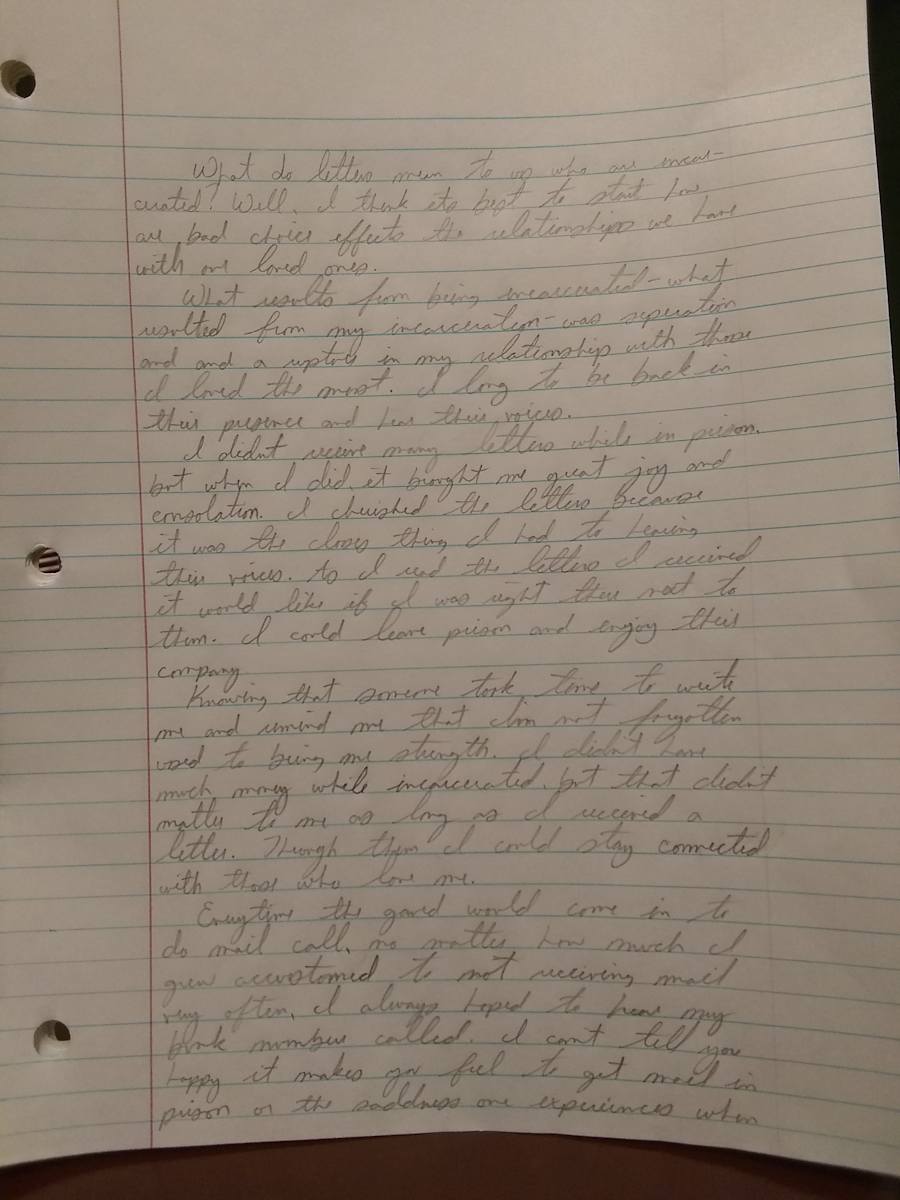 What do letters mean to us who are incar-
cerated? Well, I think its best to start how
are bad choice effects the relationships we have
with our loved ones.
What results from being incarcerated - what
resulted from my incarceration - was seperation
and and a rupture in my relationship with those
I loved the most. I long to be back in
their presence and hear their voices.
I didn't receive many letters while in prison.
but when I did, it brought me great joy and
consolation. I cherished the letters because
it was the closes thing I had to hearing
their voices. As I read the letters I received
it would like if I was right there next to
them. I could leave prison and enjoy their
company
Knowing that someone took time to write
me and remind me that I'm not forgotten
used to bring me strength. I didn't have
much money while incarcerated, but that didn't
matter to me as long as I received a
letter. Through them I could stay connected
with those who love me.
Everytime the guard would come in to
do mail call, no matter how much I
grew accustomed to not receiving mail
very often, I always hoped to hear my
bunk number called. I can't tell you
happy it makes you feel to get mail in
prison or the saddness one experiences when